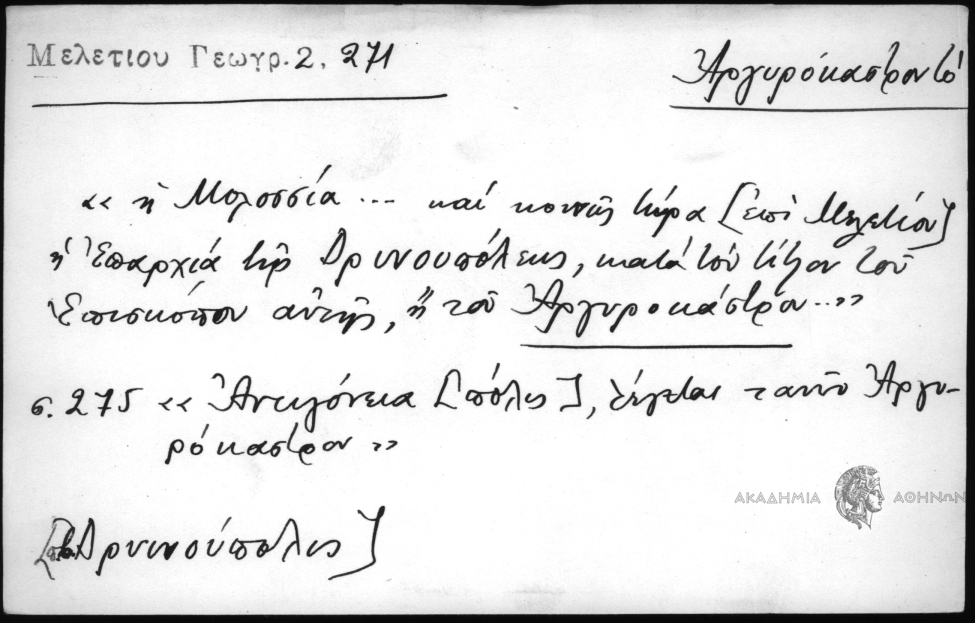 Μελετίου Γεωγρ. 2, 271
Ἀργυρόκαστρον τό
« ἡ Μολοσσία ... καί κοινῶς τώρα [ἐπί Μελετίου]
ἡ Ἐπαρχία τῆς Δρυνουπόλεως, κατά τόν τίτλον τοῦ
Ἐπισκόπου αὐτῆς, ἤ τοῦ Ἀργυροκάστρου ... »
σ. 275 « Ἀντιγόνεια [πόλις], λέγεται τανῦν Ἀργυ-
ρόκαστρον »
Δρυινούπολις]
ΑΚΑΔΗΜΙΑ ΑΘΗΝΩΝ